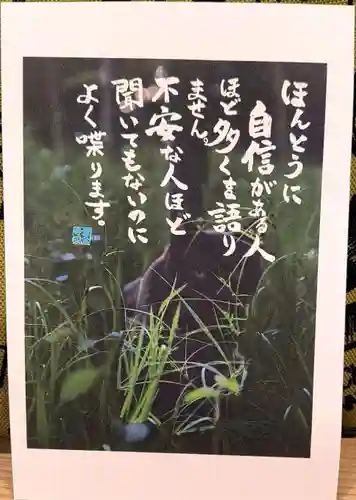 ほんとうに
自信がある人
ほど多くを語り
ません。
不安な人ほど
聞いてもないのに
よく喋ります。